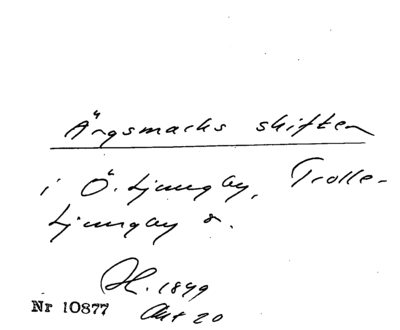 Ängsmarks skiften
i Ö. Ljungby, Trolle-
Ljungby s.
H. 1899
Nr 10877 Akt 20